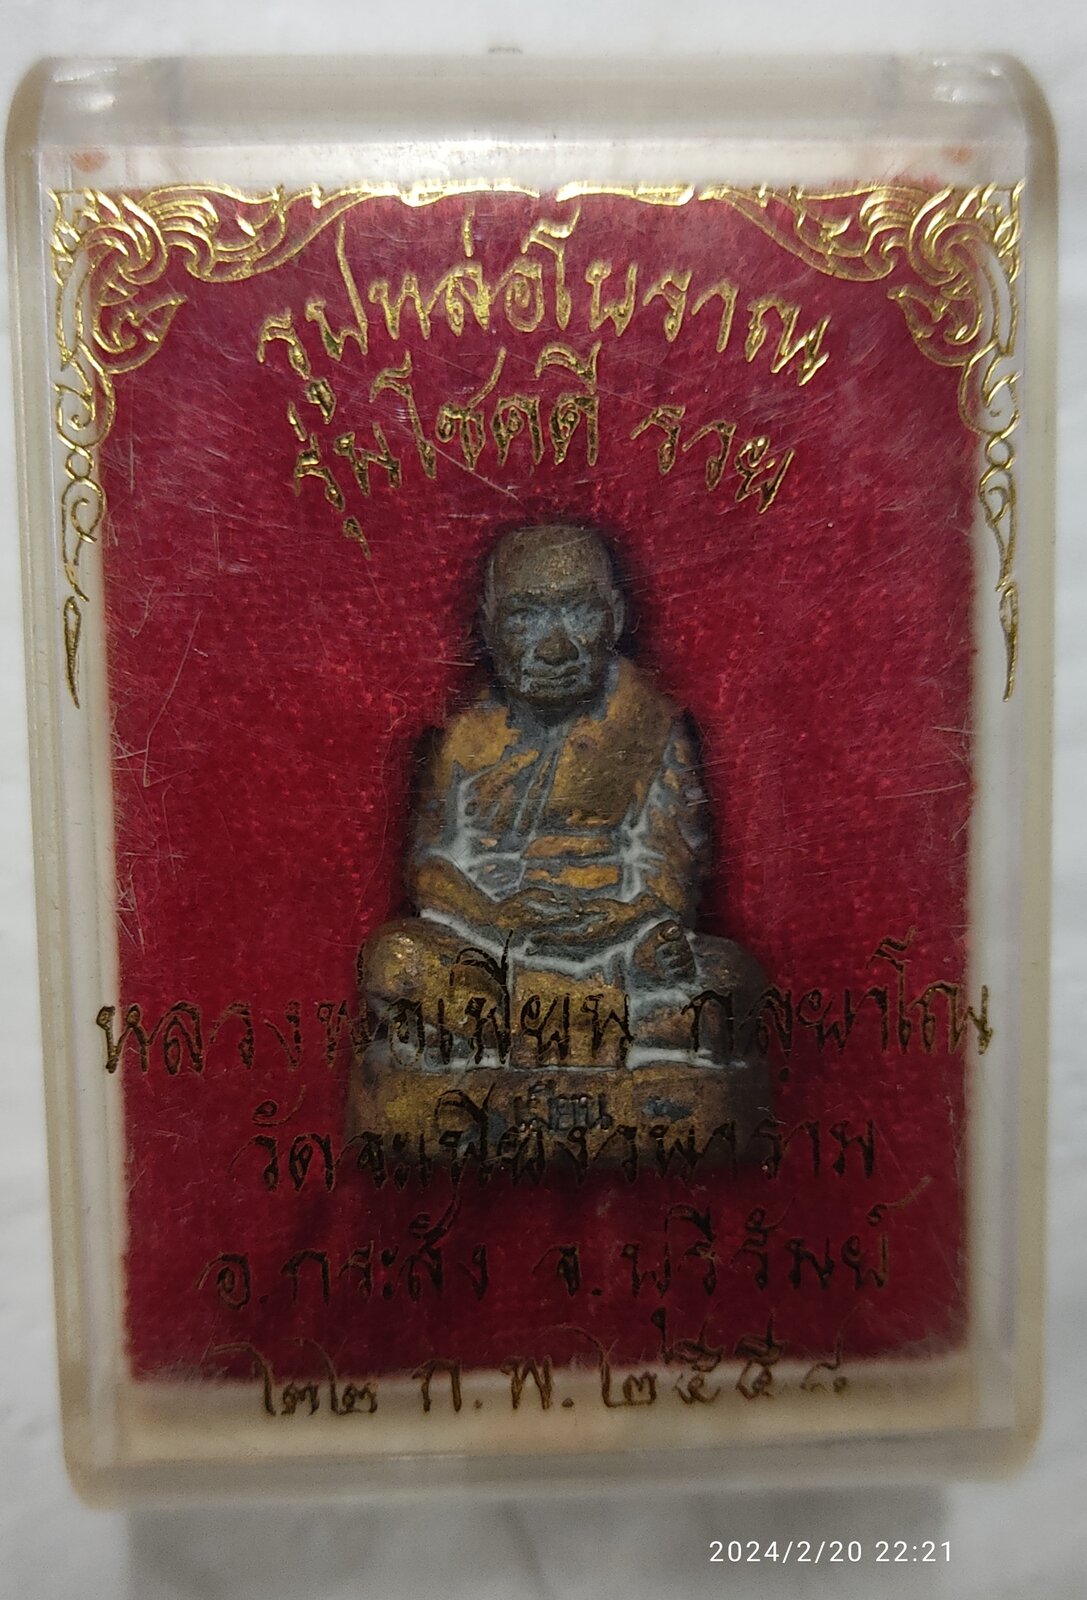 รูปหล่อโบราณ
รุ่นโชคดี รวย
หลวงพ่อเมียน กลฺยาโณ
เมียน
วัดจะเนียงวนาราม
อ.กระสัง จ.บุรีรัมย์
๒๒ ก.พ. ๒๕๕๔
2024/2/20 22:21